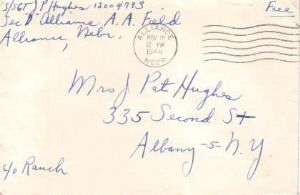 S/Sgt J P Hughes 13004993
Free
Sec D Alliance A. A. Field
Alliance, Nebr.
ALLIANCE
NOV
12 PM
NEBR.
Mrs J Pat Hughes
335 Second St
Albany-5-N.Y.
c/o Rauch